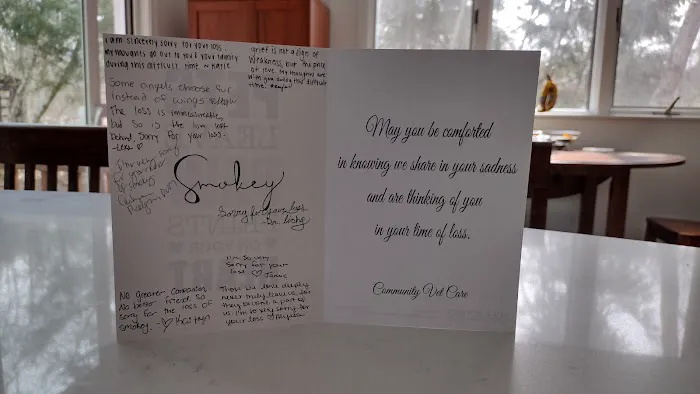 I am sincerely sorry for your loss.
My thoughts go out to you & your family
during this difficult time. ~ Katie
grief is not a sign of
weakness, but the price
of love. My thoughts are
with you during this difficult
time.
Some angels choose fur
instead of wings
The loss is immeasurable,
but so is the love left
behind. Sorry for your loss-
I'm very sorry
for your loss
of Smokey
Smokey
Sorry for your loss
-Dr.
I'm so very
sorry for your
loss ♡
No greater companion,
No better friend. So
sorry for the loss of
Smokey. -♡ Kaitlyn
Those we love deeply
never truly leave us, for
they become a part of
us. I'm so very sorry for
your loss
May you be comforted
in knowing we share in your sadness
and are thinking of you
in your time of loss.
Community Vet Care